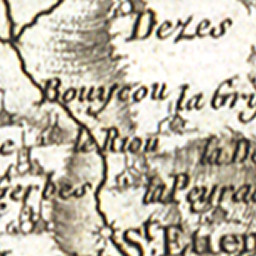 Dezes
Bouyçou
la Gry
le Riou
la De
gerbes
la Peyra
St. Etien